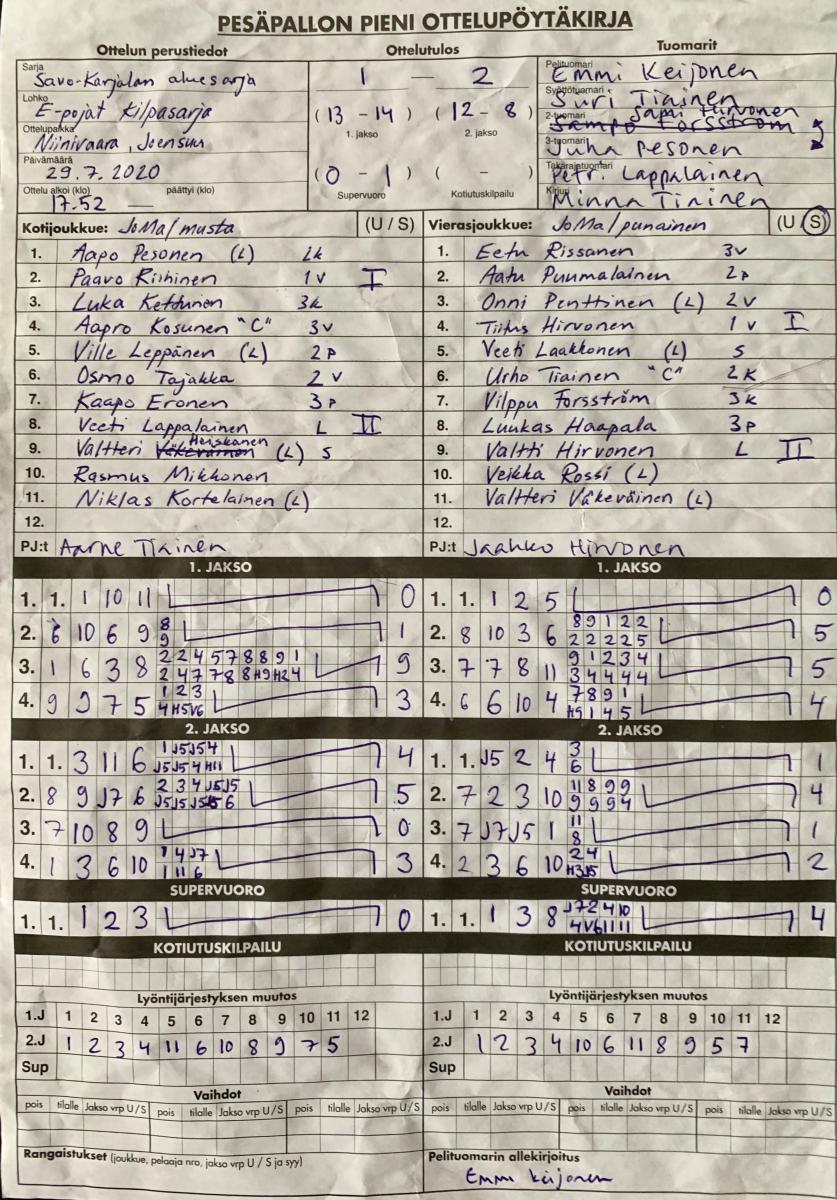 PESÄPALLON PIENI OTTELUPÖYTÄKIRJA
Ottelun perustiedot
Sarja
Savo-Karjalan aluesarja
Lohko
E-pojat kilpasarja
Ottelupaikka
Niinivaara, Joensuu
Päivämäärä
29.7.2020
Ottelu alkoi (klo) päättyi (klo)
17.52 —
Ottelutulos
1 — 2
(13 - 14) (12 - 8)
1. jakso 2. jakso
(0 - 1) ( - )
Supervuoro Kotiutuskilpailu
Tuomarit
Pelituomari
Emmi Keijonen
Syöttötuomari
Suri Tiainen
2-tuomari
Sami Hirvonen
Sampo Forsström
3-tuomari
Juha Pesonen
Takarajatuomari
Petri Lappalainen
Kirjuri
Minna Tiainen
Kotijoukkue: JoMa/musta (U / S)
1. Aapo Pesonen (L) 2k
2. Paavo Riihinen 1v I
3. Luka Kettunen 3k
4. Aapro Kosunen "C" 3v
5. Ville Leppänen (L) 2p
6. Osmo Tajakka 2v
7. Kaapo Eronen 3p
8. Veeti Lappalainen L II
9. Valtteri Heiskanen (L) S
10. Rasmus Mikkonen
11. Niklas Kortelainen (L)
12.
PJ:t Aarne Tiainen
Vierasjoukkue: JoMa/punainen (U / S)
1. Eetu Rissanen 3v
2. Aatu Puumalainen 2p
3. Onni Penttinen (L) 2v
4. Tiitus Hirvonen 1v I
5. Veeti Laakkonen (L) S
6. Urho Tiainen "C" 2k
7. Vilppu Forsström 3k
8. Luukas Haapala 3p
9. Valtti Hirvonen L II
10. Veikka Rossi (L)
11. Valtteri Väkeväinen (L)
12.
PJ:t Jaahko Hirvonen
1. JAKSO
1. 1. 1 10 11 0
2. 6 10 6 9 8 1
9
3. 1 6 3 8 2 2 4 5 7 8 8 9 1 9
2 4 7 7 8 8 H9 H2 4
4. 9 9 7 5 1 2 3 3
4 H5 V6
2. JAKSO
1. 1. 3 11 6 1 J5 J5 4 4
J5 J5 4 H11
2. 8 9 J7 6 2 3 4 J5 J5 5
3. 7 10 8 9 0
4. 1 3 6 10 1 4 J7 3
1 11 6
SUPERVUORO
1. 1. 1 2 3 0
KOTIUTUSKILPAILU
1. JAKSO
1. 1. 1 2 5 0
2. 8 10 3 6 8 9 1 2 2 5
2 2 2 2 5
3. 7 7 8 11 9 1 2 3 4 5
3 4 4 4 4
4. 6 6 10 4 7 8 9 1 4
H9 1 4 5
2. JAKSO
1. 1. J5 2 4 3 1
6
2. 7 2 3 10 11 8 9 9 4
9 9 9 4
3. 7 J7 J5 1 11 1
8
4. 2 3 6 10 2 4 2
H3 J5
SUPERVUORO
1. 1. 1 3 8 J7 2 4 10 4
4 V6 11 11
KOTIUTUSKILPAILU
Lyöntijärjestyksen muutos
1.J 1 2 3 4 5 6 7 8 9 10 11 12
2.J 1 2 3 4 11 6 10 8 9 7 5
Sup
Vaihdot
pois tilalle Jakso vrp U / S pois tilalle Jakso vrp U / S pois tilalle Jakso vrp U / S
Rangaistukset (joukkue, pelaaja nro, jakso vrp U / S ja syy)
Lyöntijärjestyksen muutos
1.J 1 2 3 4 5 6 7 8 9 10 11 12
2.J 1 2 3 4 10 6 11 8 9 5 7
Sup
Vaihdot
pois tilalle Jakso vrp U / S pois tilalle Jakso vrp U / S pois tilalle Jakso vrp U / S
Pelituomarin allekirjoitus
Emmi Keijonen